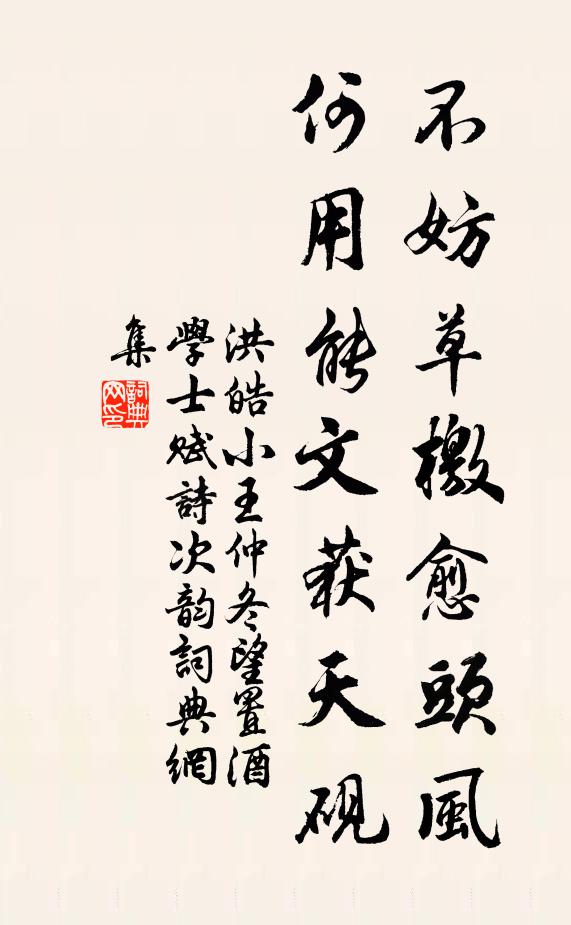 不妨草檄愈頭風
何用能文获天硯
洪皓小王仲冬望置酒
學士赋詩次韵詞典網
集
詞典
网印